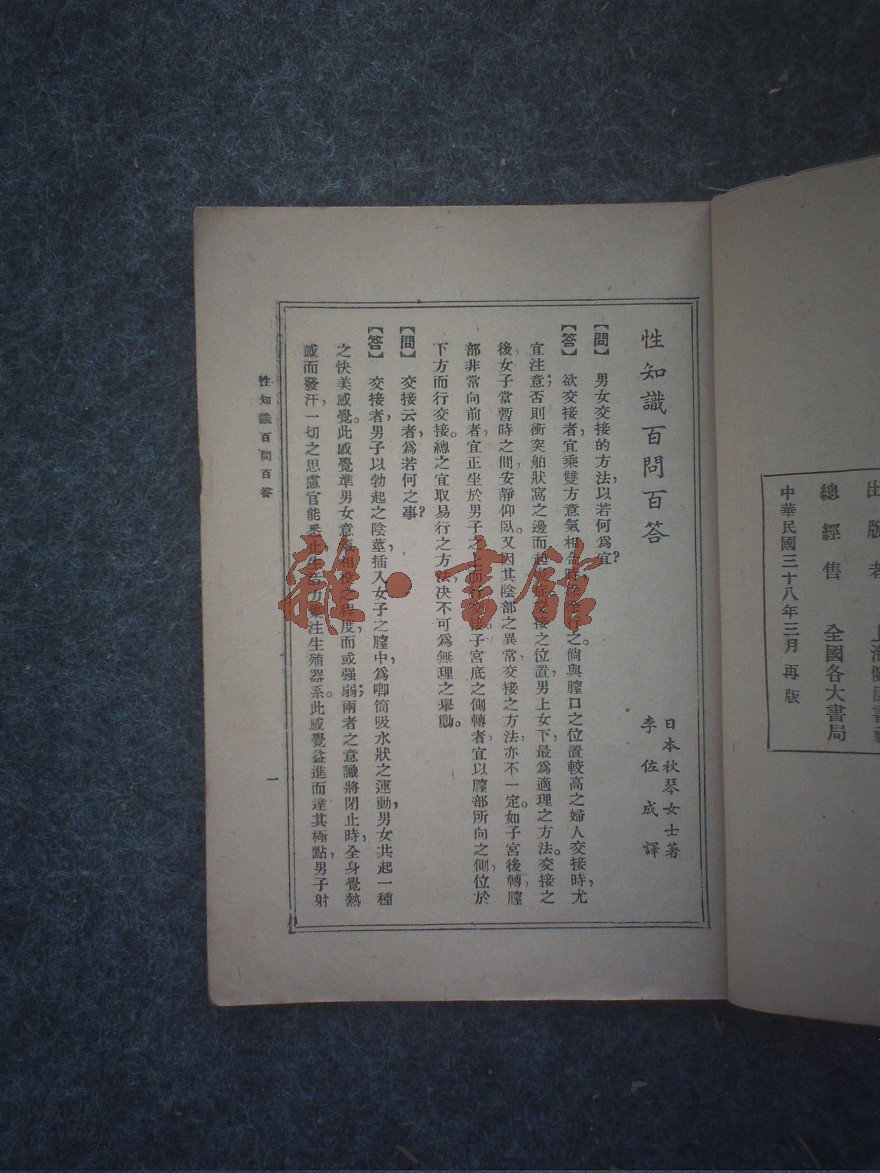 出版者 上海
總經售 全國各大書局
中華民國三十八年三月 再版
性知識百問百答
日本秋琴女士著
李佐成譯
【問】 男女交接的方法，以若何爲宜？
【答】 欲交接者，宜乘雙方意氣相合時 之。倘與膣口之位置較高之婦人交接時，尤
宜注意；否則衝突舶狀窩之邊而起 交接之位置，男上女下，最爲適理之方法。交接之
後，女子當暫時之間，安靜仰臥。又因其陰部之異常，交接之方法，亦不一定。如子宮後轉，膣
部非常向前者，宜正坐於男子之上而行 子宮底之側轉者，宜以膣部所向之側，位於
下方而行交接。總之宜取易行之方法，決不可爲無理之舉動。
【問】 交接云者，爲若何之事？
【答】 交接者，男子以勃起之陰莖，插入女子之膣中，爲喞筒吸水狀之運動，男女共起一種
之快美感覺。此感覺準男女意氣相投之程度，而或强弱；兩者之意識將閉止時，全身覺熱
感而發汗，一切之思慮官能悉 注生殖器系。此感覺益進而達其極點，男子射
性知識百問百答
一
雜·書館